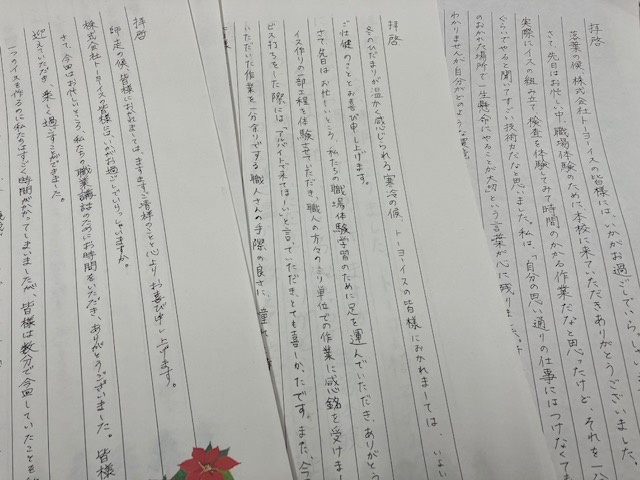 拝啓
落葉の候、株式会社トーヨーイスの皆様には、いかがお過ごしでいらっしゃい
さて、先日はお忙しい中、職場体験のために本校に来ていただきありがとうございました。
実際にイスの組み立て、検査を体験してみて時間のかかる作業だなと思ったけど、それを一分
ぐらいでやると聞いてすごい技術力だなと思いました。私は、「自分の思い通りの仕事にはつけなくても
のおかれた場所で一生懸命にやることが大切」という言葉が心に残りました。
わかりませんが自分がどのような
拝啓
冬のひだまりが温かく感じられる寒冷の候、トーヨーイスの皆様におかれましては、いよい
ご壮健のこととお喜び申し上げます。
さて、先日はお忙しいところ、私たちの職場体験学習のために足を運んでいただき、ありがとう
イス作りの一部工程を体験させていただき、職人の方々のミリ単位での作業に感銘を受けまし
ビス打ちをした際には「アルバイトで来てほしい」と言っていただき、とても喜しかったです。また、今
いただいた作業を一分余りでする職人さんの手際の良さに、
拝啓
師走の候、皆様におかれましては、ますますご清祥のことと心よりお喜び申し上げます。
株式会社トーヨーイスの皆様にはいかがお過ごしでいらっしゃいますか。
さて、今回はお忙しいところ、私たちの職業講話のためにお時間をいただき、ありがとうございました。皆様
迎えていただき楽しく過ごすことができました。
一つのイスを作るのに私たちはすごく時間がかかってしまいましたが、皆様は数分で完